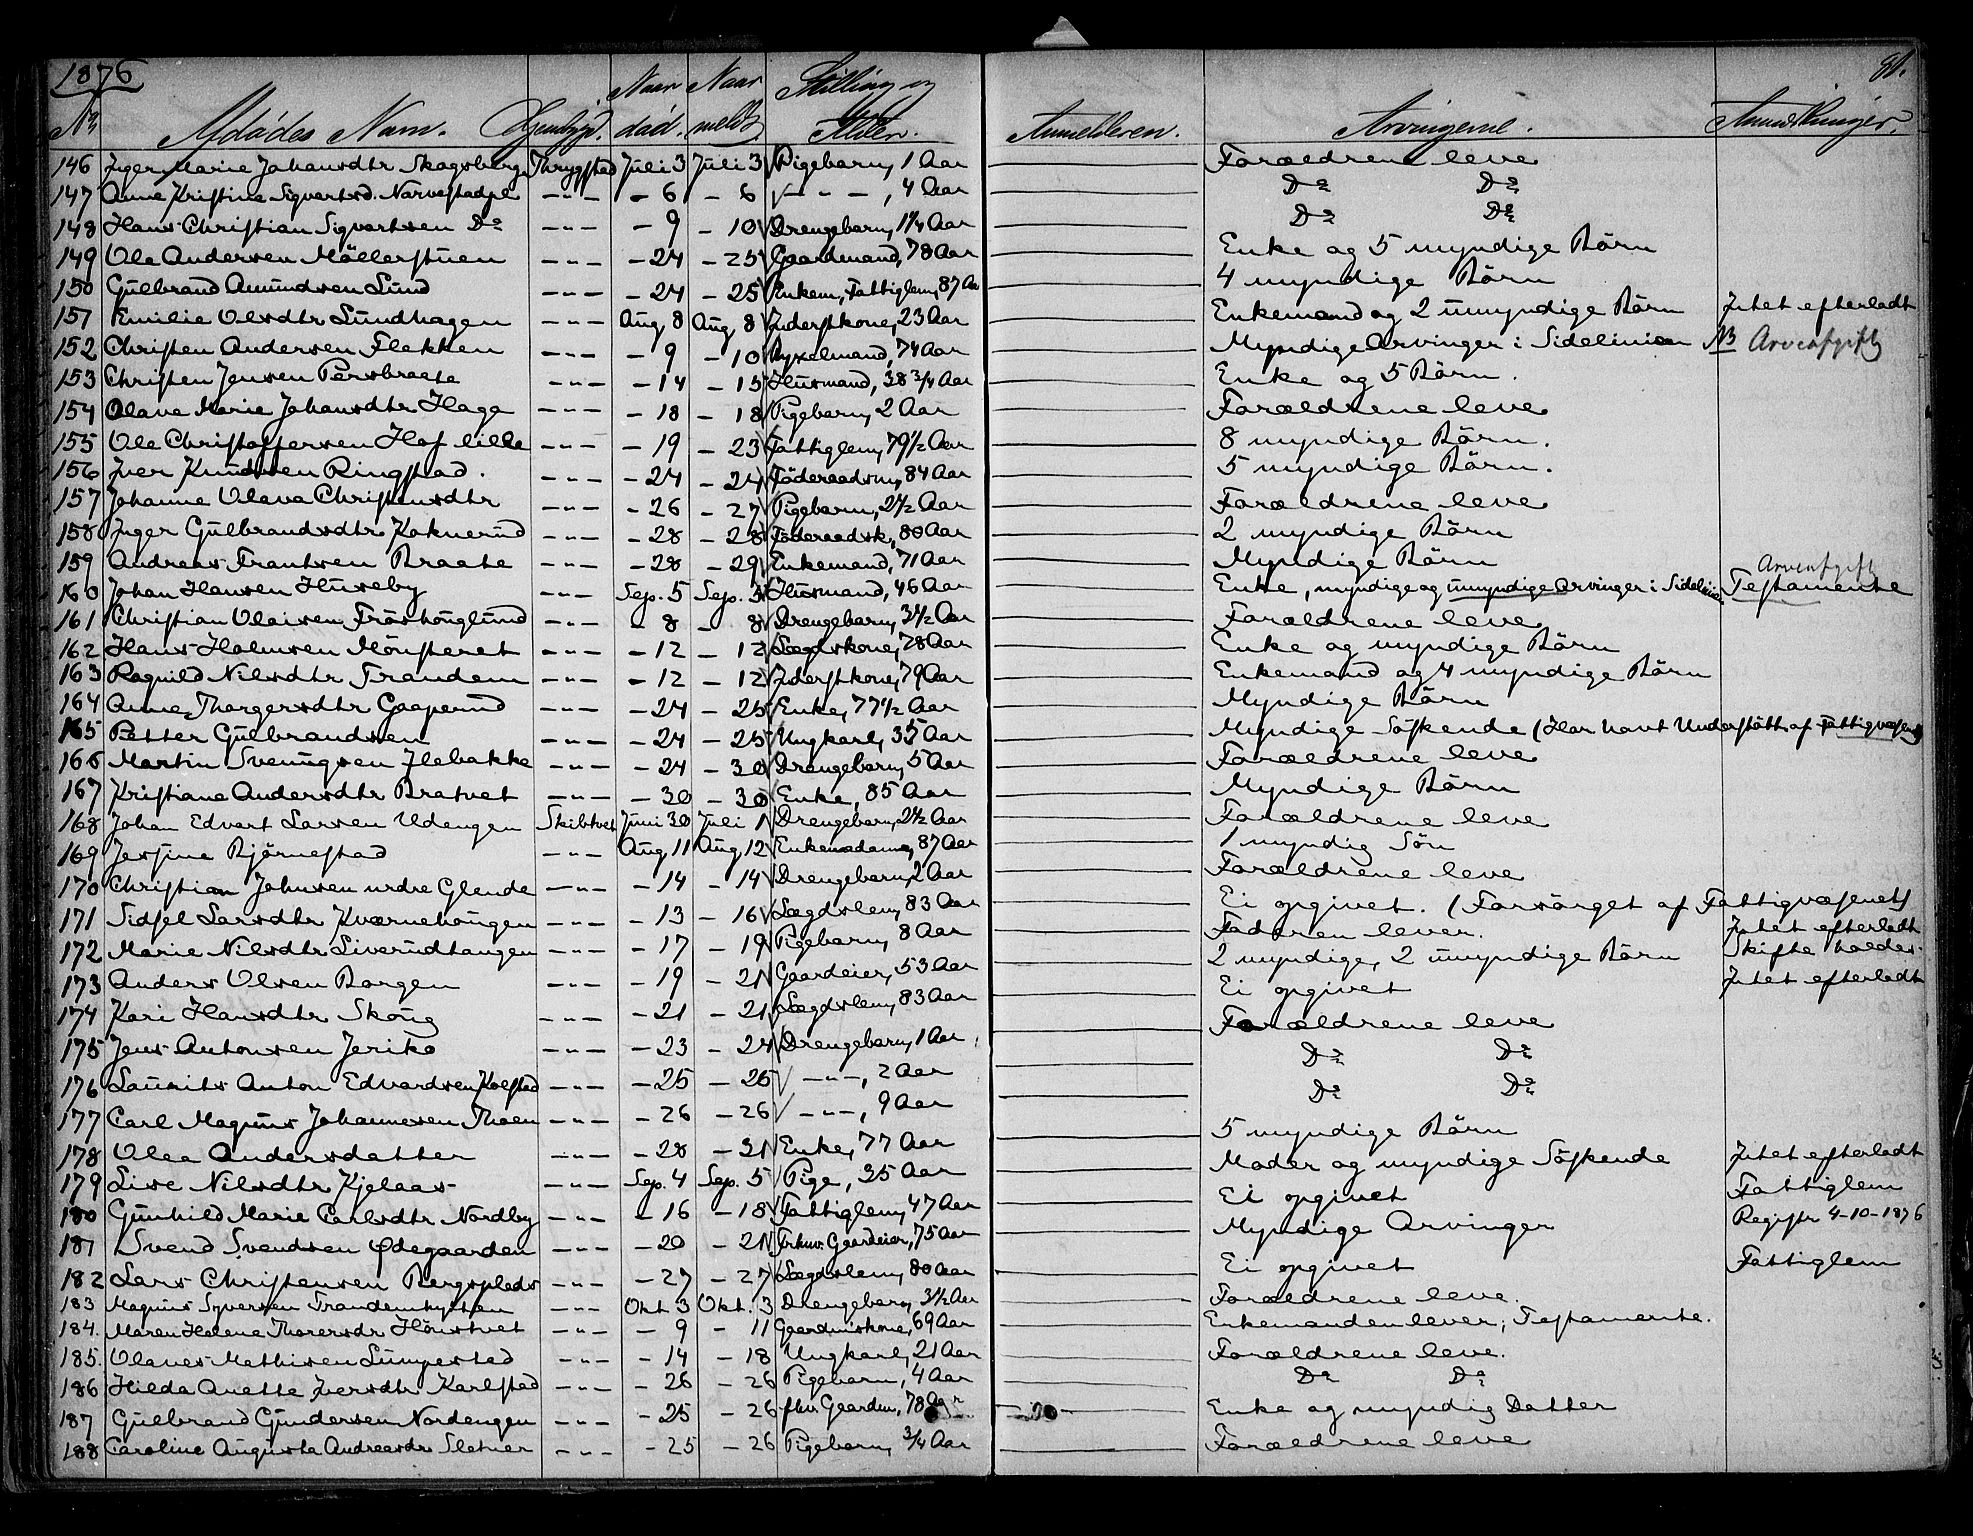 1876 81.
No Afdødes Navn. Hjembygd. Naar død. Naar meldt Stilling og Alder. Anmelderen. Arvingerne. Anmærkninger.
146 Inger Marie Johansdtr Skagsberg Thrygstad Juli 3 Juli 3 Pigebarn, 1 Aar Forældrene leve
147 Anne Kristine Sigvartsd. Narvestad - " - - 6 - 6 - " -, 4 Aar Do Do
148 Hans Christian Sigvartsen Do - " - - 9 - 10 Drengebarn, 1¼ Aar Do Do
149 Ole Andersen Möllerstuen - " - - 24 - 25 Gaardmand, 78 Aar Enke og 5 myndige Börn
150 Gulbrand Amundsen Lund - " - - 24 - 25 Enkem, Fattiglem, 87 Aar 4 myndige Börn
151 Emilie Olsdtr Lundhagen - " - Aug 8 Aug 8 Inderstkone, 23 Aar Enkemand og 2 umyndige Börn Intet efterladt
152 Christen Andersen Flekken - " - - 9 - 10 74 Aar Myndige Arvinger i Sidelinien NB Arveafgift
153 Christen Jensen Persbraate - " - - 14 - 15 Husmand, 38¾ Aar Enke og 5 Börn.
154 Olava Marie Johansdtr Hage - " - - 18 - 18 Pigebarn, 2 Aar Forældrene leve
155 Ole Christoffersen Hof lille - " - - 19 - 23 Fattiglem, 79½ Aar 8 myndige Börn.
156 Iver Knudsen Ringstad. - " - - 24 - 24 Föderaadsm, 84 Aar 5 myndige Börn.
157 Johanne Olava Christensdtr - " - - 26 - 27 Pigebarn, 2½ Aar Forældrene leve
158 Inger Gulbrandsdtr Kaknerud - " - - 28 - 28 Föderaadsk, 80 Aar 2 myndige Börn
159 Andreas Frantsen Braate - " - - 28 - 29 Enkemand, 71 Aar Myndige Börn
160 Johan Hansen Huseby - " - Sep. 5 Sep. 5 Husmand, 46 Aar Enke, myndige og umyndige Arvinger i Sidelinien Arveafgift Testamente
161 Christian Olaisen Fröshouglund - " - - 8 - 8 Drengebarn, 3½ Aar Forældrene leve
162 Hans Halmsen Mönsteret - " - - 12 - 12 Lægdskone, 78 Aar Enke og myndige Börn
163 Ragnild Nilsdtr Trandem - " - - 12 - 12 Inderstkone, 79 Aar Enkemand og 4 myndige Börn
164 Anne Thorgersdtr Gaaperud - " - - 24 - 25 Enke, 77½ Aar Myndige Börn
165 Petter Gulbrandsen - " - - 24 - 25 Ungkarl, 35 Aar Myndige Söskende (Har havt Understött. af Fattigvæsenet)
166 Martin Svenugsen Ilebakke - " - - 24 - 30 Drengebarn, 5 Aar Forældrene leve
167 Kristiane Andersdtr Bratvet - " - - 30 - 30 Enke, 85 Aar Myndige Börn
168 Johan Edvart Larsen Udengen Skibtvet Juni 30 Juli 1 Drengebarn, 2½ Aar Forældrene leve
169 Jessine Bjørnestad - " - Aug 11 Aug 12 Enkemadame, 87 Aar 1 myndig Sön
170 Christian Johnsen nrdre Glende - " - - 14 - 14 Drengebarn, 2 Aar Forældrene leve
171 Sidsel Larsdtr Kværnehougen - " - - 13 - 16 Lægdslem, 83 Aar Ei opgivet. (Forsörget af Fattigvæsenet)
172 Marie Nilsdtr Liverudhaugen - " - - 17 - 19 Pigebarn, 8 Aar Faderen lever. Intet efterladt
173 Anders Olsen Borgen - " - - 19 - 21 Gaardeier, 53 Aar 2 myndige, 2 umyndige Börn Skifte holdes.
174 Kari Hansdtr Skoug - " - - 21 - 21 Lægdslem, 83 Aar Ei opgivet Intet efterladt
175 Jens Antonsen Jeriko - " - - 23 - 24 Drengebarn, 1 Aar Forældrene leve
176 Laurits Anton Edvardsen Kolstad - " - - 25 - 25 - " -, 2 Aar Do Do
177 Carl Magnus Johannesen Thoen - " - - 26 - 26 - " -, 9 Aar Do Do
178 Olea Andersdatter - " - - 28 - 31 Enke, 77 Aar 5 myndige Börn
179 Lise Nilsdtr Kjelaas - " - Sep. 4 Sep. 5 Pige, 35 Aar Moder og myndige Söskende Intet efterladt
180 Gunhild Marie Carlsdtr Nordby - " - - 16 - 18 Fattiglem, 47 Aar Ei opgivet Fattiglem
181 Svend Svendsen Ødegaarden - " - - 20 - 21 Gaardeier, 75 Aar Myndige Arvinger Registr 4-10-1876
182 Lars Christensen Bergsplads - " - - 27 - 27 Lægdslem, 80 Aar Ei opgivet Fattiglem
183 Magnus Syversen Trandemhytten - " - Okt 3 Okt. 3 Drengebarn, 3½ Aar Forældrene leve.
184. Maren Helene Thorersdr Hönstvet - " - - 9 - 11 Gaardmskone, 69 Aar Enkemanden lever, Testamente.
185. Olaves Mathisen Lumpestad - " - - 14 - 18 Ungkarl, 21 Aar Forældrene leve.
186 Hilda Anette Iversdtr Karlstad - " - - 26 - 26 Pigebarn, 4 Aar Do Do
187 Gulbrand Gundersen Nordengen - " - - 25 - 26 78 Aar Enke og myndig Datter
188 Caroline Augusta Andreasdr Sletner - " - - 25 - 26 Pigebarn, ¾ Aar Forældrene leve